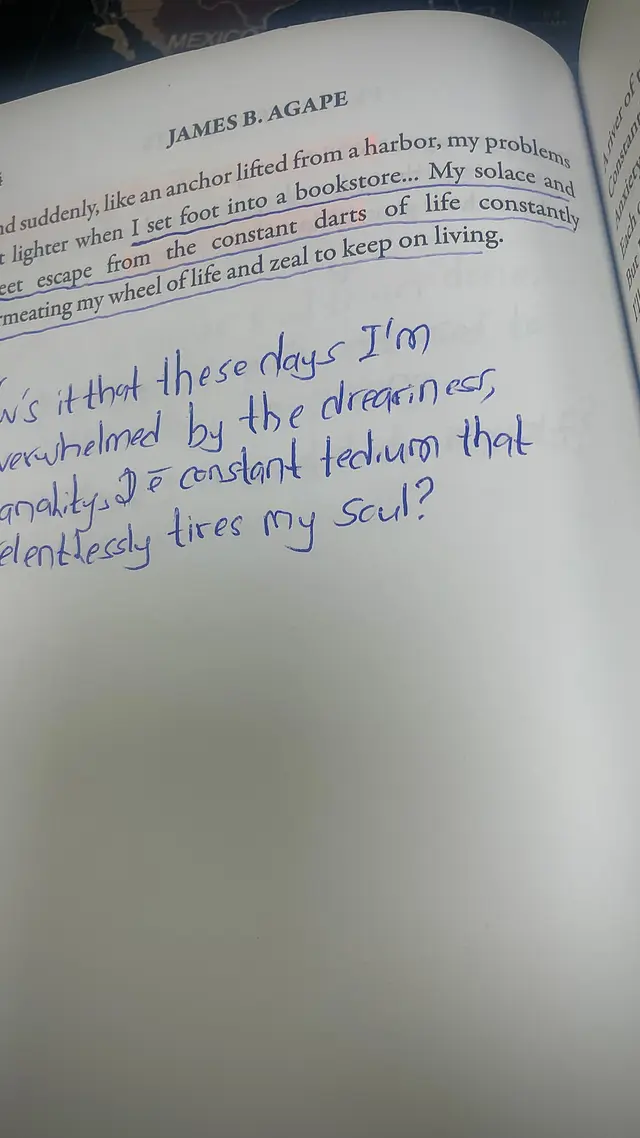 MEXICO
JAMES B. AGAPE
nd suddenly, like an anchor lifted from a harbor, my problems
t lighter when I set foot into a bookstore... My solace and
eet escape from the constant darts of life constantly
rmeating my wheel of life and zeal to keep on living.
w's it that these days I'm
verwhelmed by the dreariness,
anality, & ē constant tedium that
elentlessly tires my soul?
A river of
Constant
Anxiety
Each
But